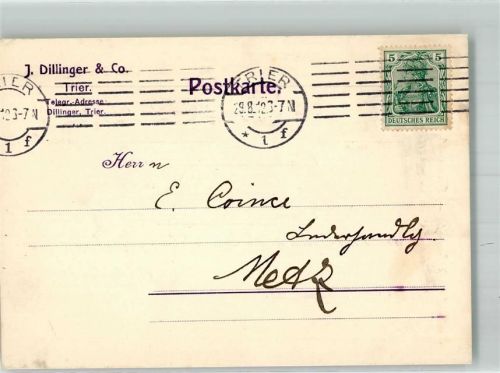 J. Dillinger & Co.
Trier.
Telegr.-Adresse
Dillinger, Trier.
Postkarte.
TRIER
29.8.12 6-7 N
* 1 f
5 5
DEUTSCHES REICH
Herrn
E. Coince
Lederhandlg.
Metz